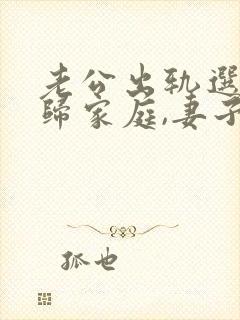 老公出轨選
歸家庭,妻子
孤也